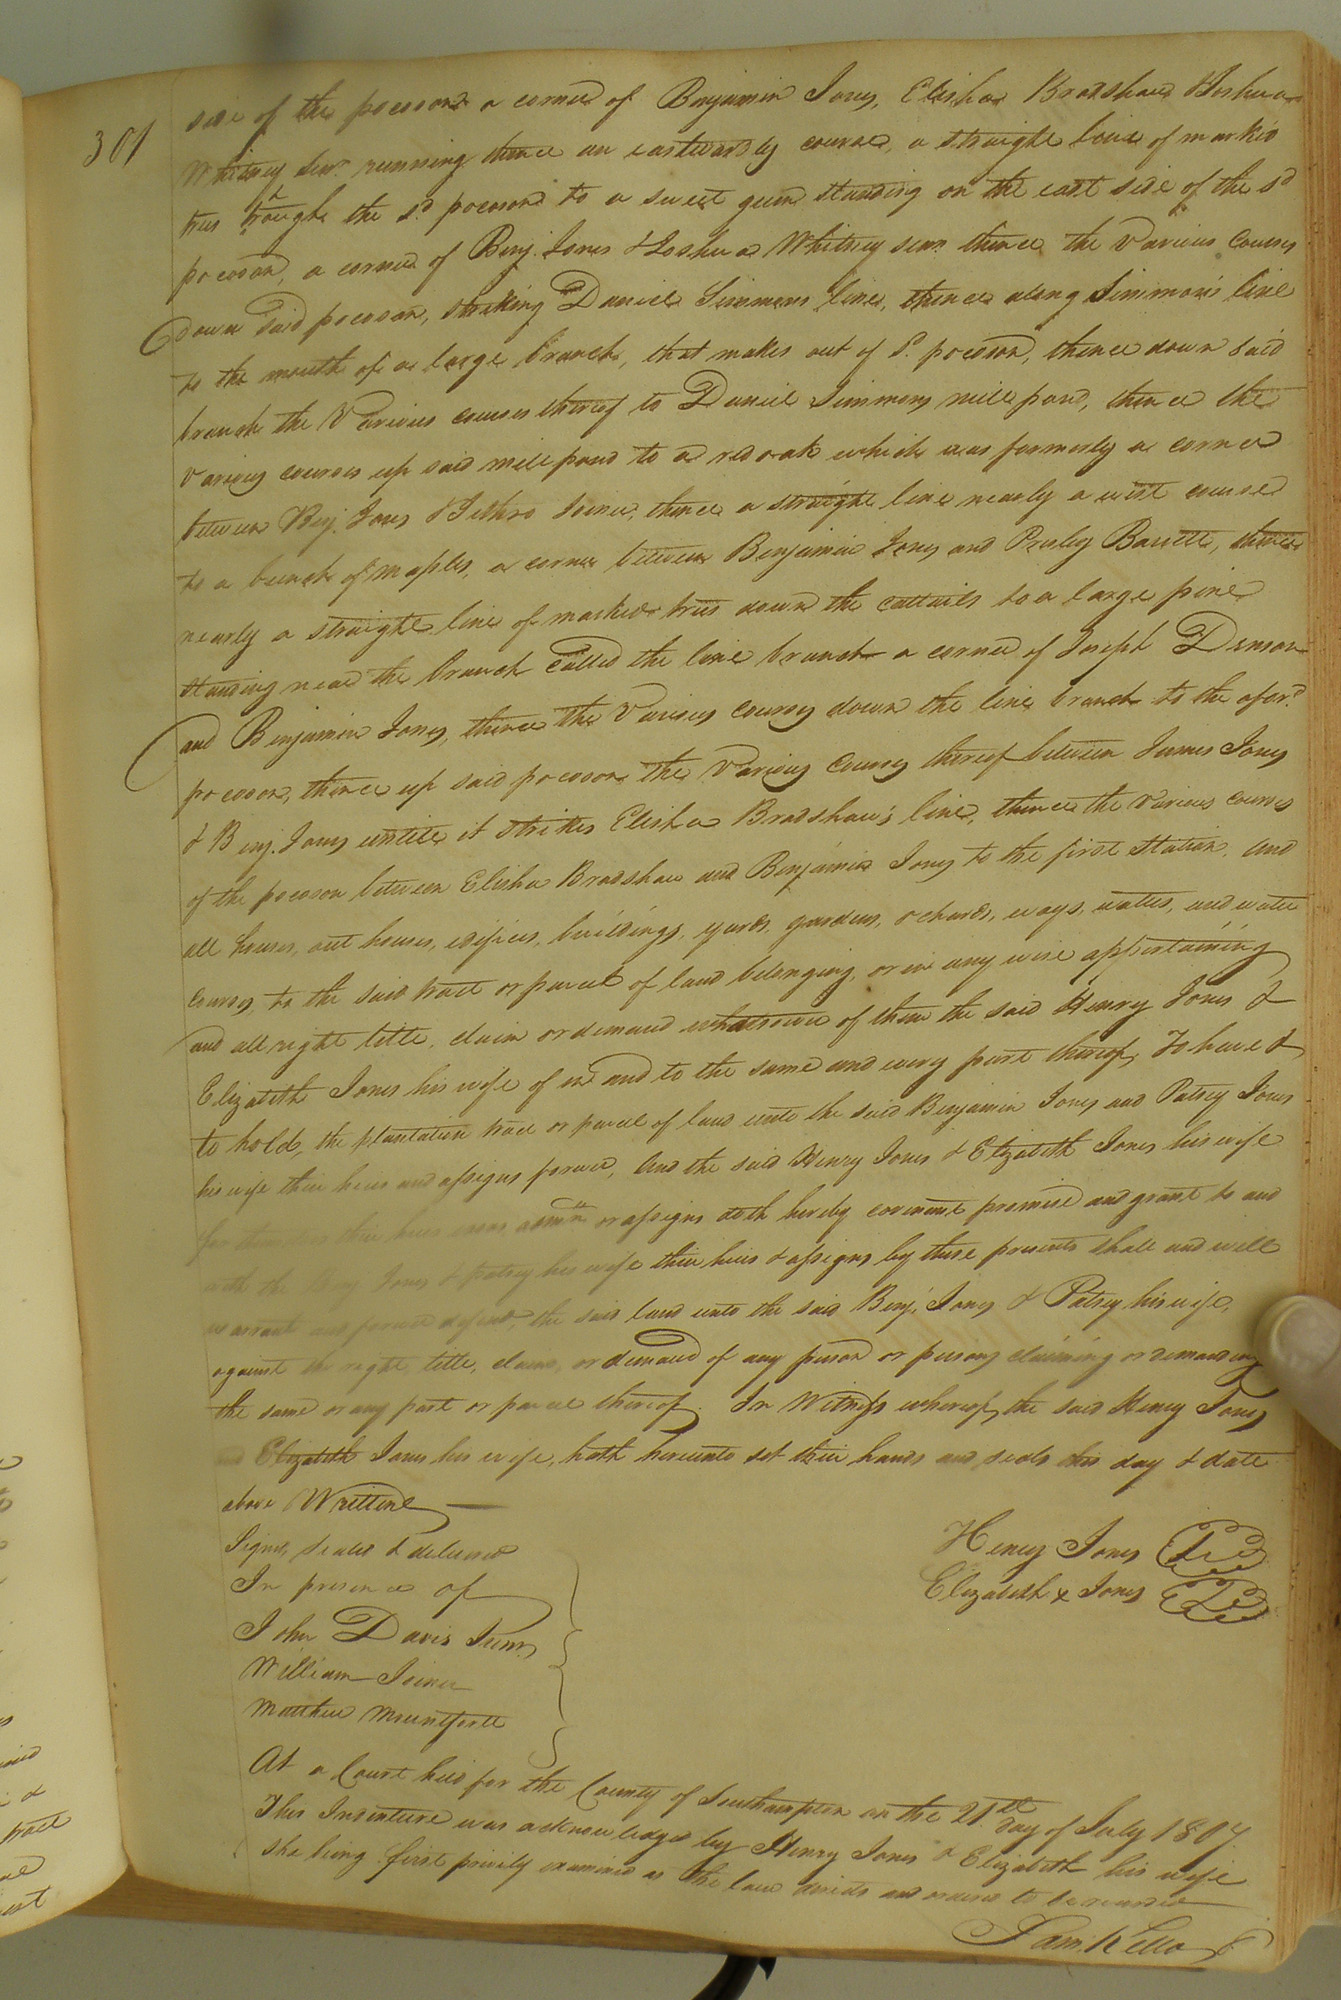 301
side of the pocoson a corner of Benjamin Jones, Elisha Bradshaw & Joshua
Whitney Senr. running thence an eastwardly course, a straight line of marked
trees through the sd. pocoson to a sweet gum standing on the east side of the sd
pocoson, a corner of Benj. Jones & Joshua Whitney senr. thence the various courses
down said pocoson, striking Daniel Simmons line, thence along Simmon's line
to the mouth of a large branch, that makes out of sd. pocoson, thence down said
branch the various courses thereof to Daniel Simmons mill pond, thence the
various courses up said mill pond to a red oak which was formerly a corner
between Benj. Jones & Jethro Joiner, thence a straight line nearly a west course
to a bunch of maples, a corner between Benjamin Jones and Presley Barrett, thence
nearly a straight line of marked trees down the cattails to a large pine
standing near the branch called the line branch a corner of Joseph Denson
and Benjamin Jones, thence the various courses down the line branch to the afors.d
pocoson, thence up said pocoson the various courses thereof between James Jones
& Benj. Jones untill it strikes Elisha Bradshaw's line, thence the various courses
of the pocoson between Elisha Bradshaw and Benjamin Jones to the first station, and
all houses, out houses, edifices, buildings, yards, gardens, orchards, ways, waters, and water
courses, to the said tract or parcel of land belonging, or in any wise appertaining
and all right title, claim or demand whatsoever of them the said Henry Jones &
Elizabeth Jones his wife of in and to the same and every part thereof, To have &
to hold, the plantation tract or parcel of land unto the said Benjamin Jones and Patsey Jones
his wife their heirs and assigns forever, And the said Henry Jones & Elizabeth Jones his wife
for their heirs admrs. or assigns doth hereby covenant promise and grant to and
with the Benj. Jones & patsey his wife their heirs & assigns by these presents shall and will
warrant and forever defend, the said land unto the said Benj. Jones & Patsey his wife,
against the right, title, claim, or demand of any person or persons claiming or demanding
the same or any part or parcel thereof. In Witness whereof, the said Henry Jones
and Elizabeth Jones his wife, hath hereunto set their hands and seals this day & date
above Written
Signd, sealed & delivered
In presence of
John Davis Junr.
William Joiner
Matthew Mountfortt
Henry Jones LS
Elizabeth x Jones LS
At a Court held for the County of Southampton on the 21th day of July 1807
This Indenture was acknowledged by Henry Jones & Elizabeth his wife
she being first privily examined as the law directs and ordered to be recorded
Sam. Kello C